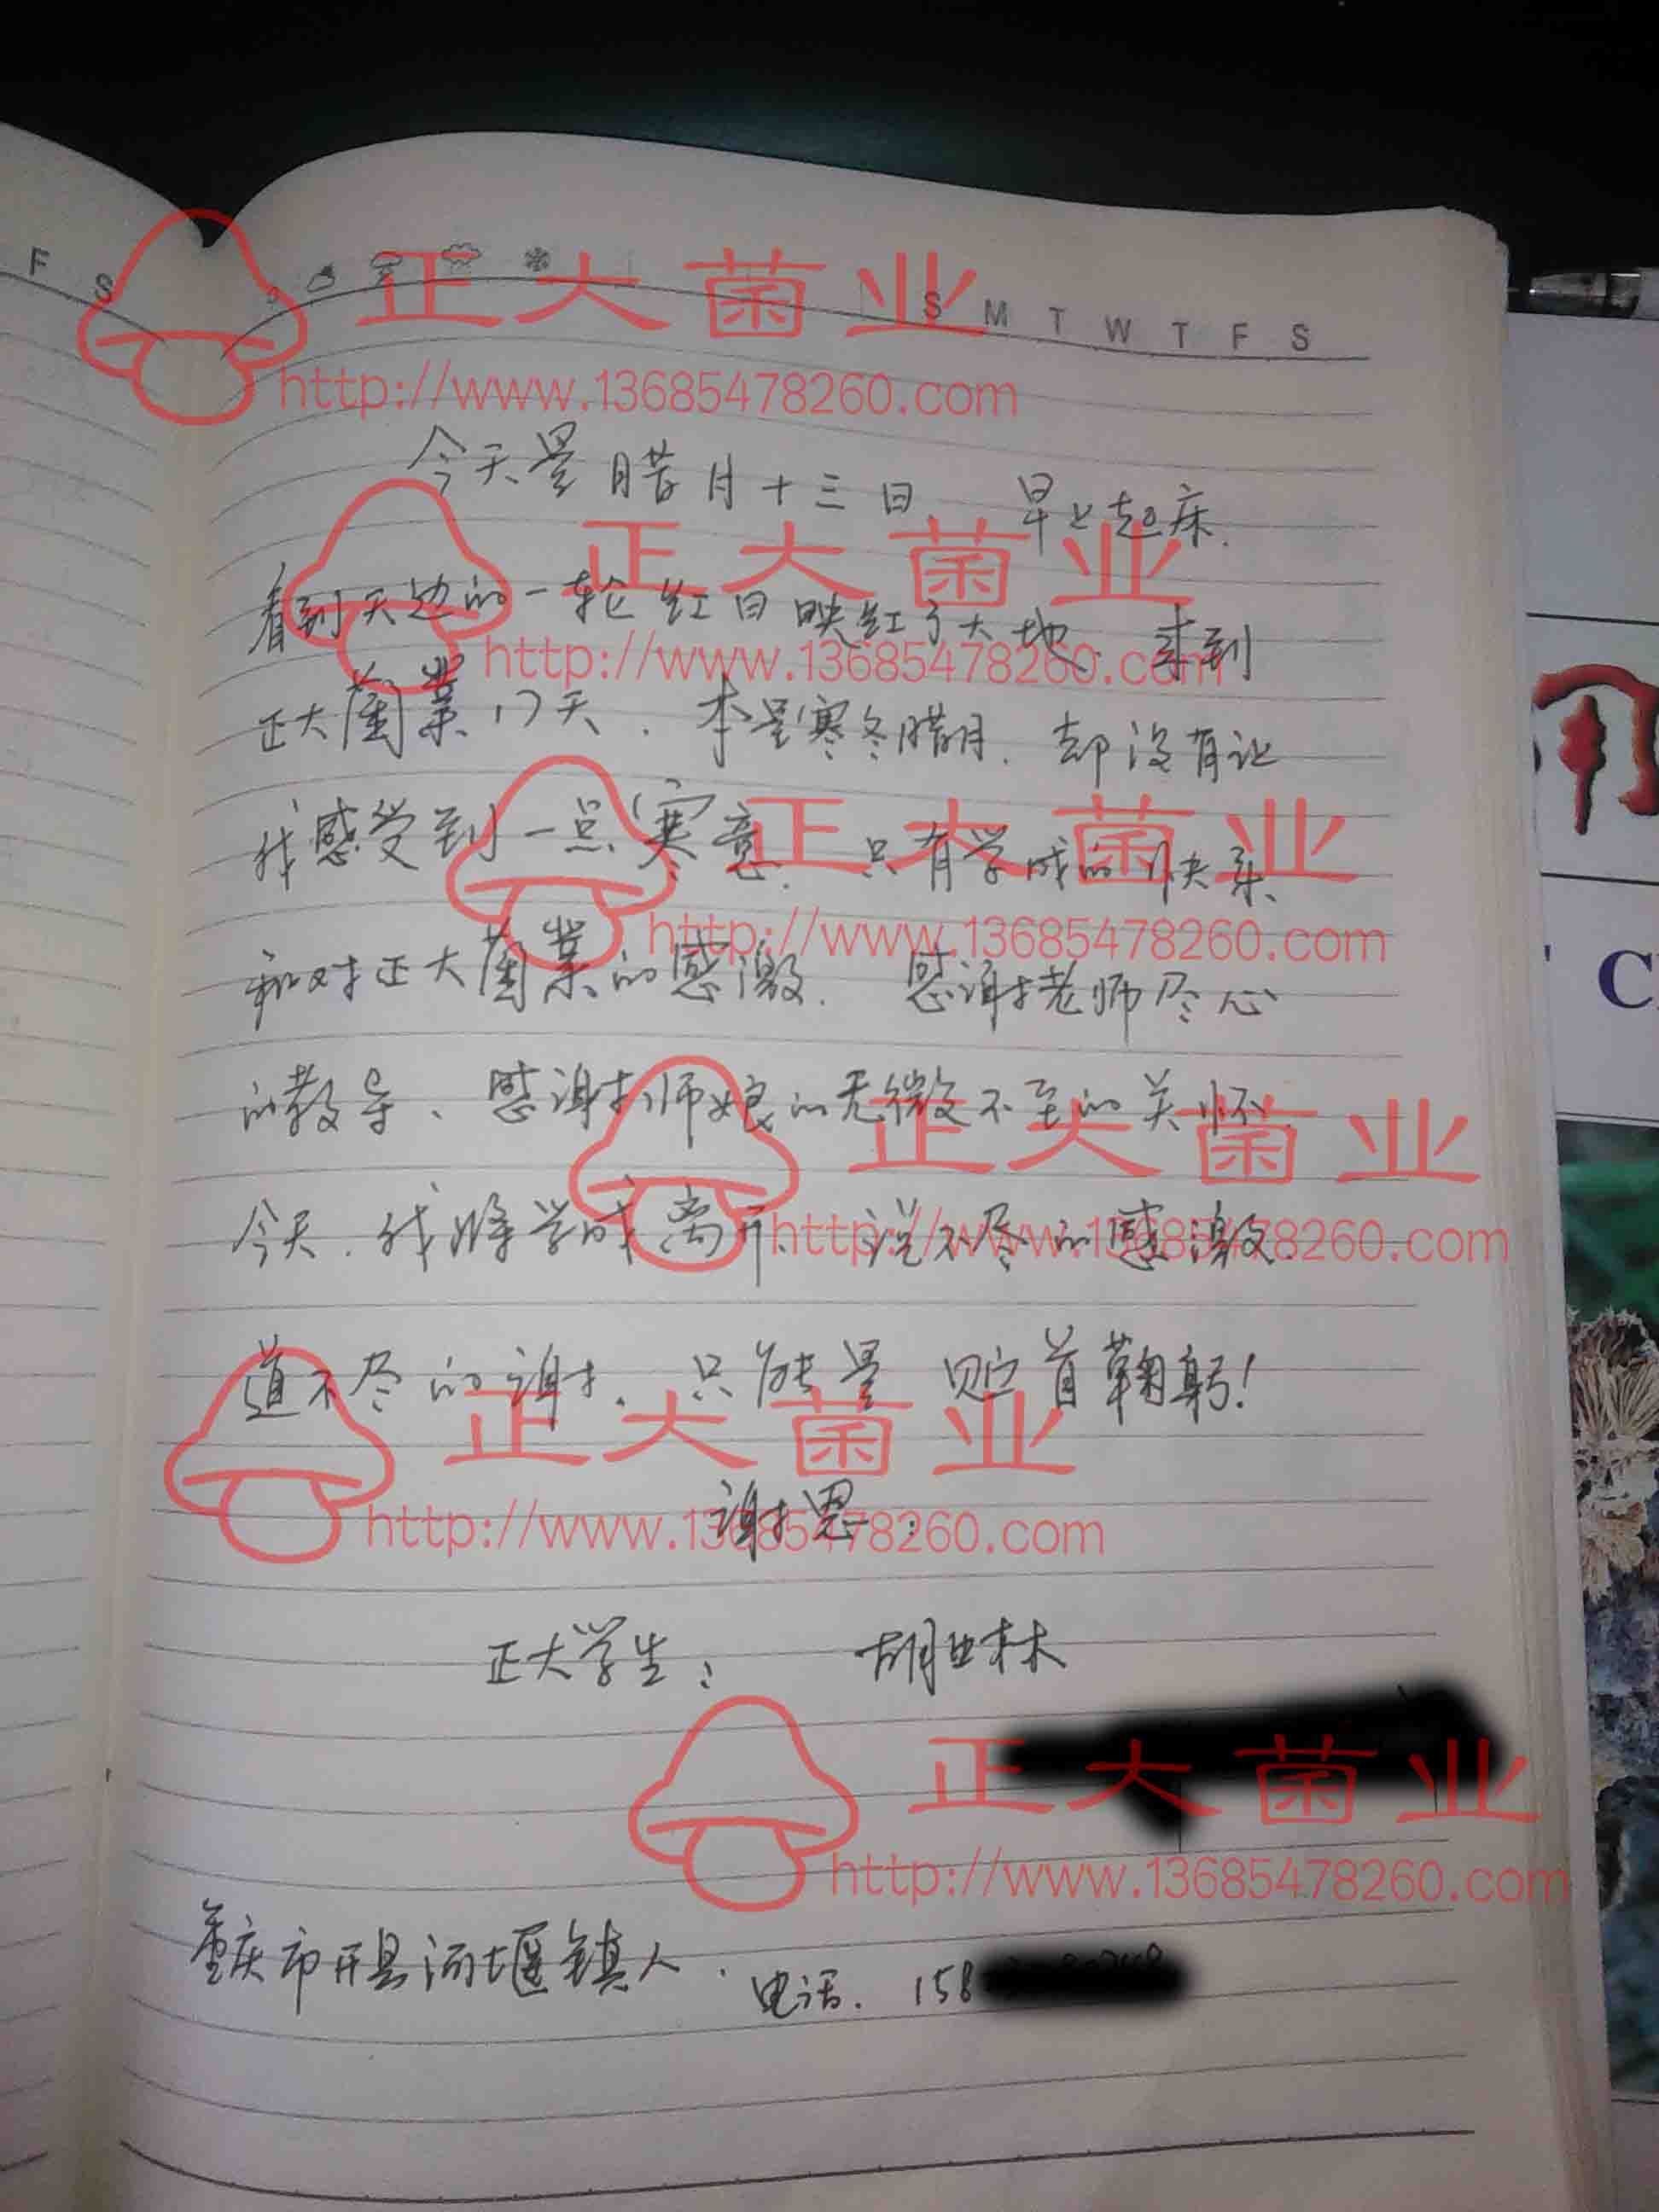 F S
S M T W T F S
正大菌业
http://www.13685478260.com
今天是腊月十三日. 早上起床.
正大菌业
看到天边的一轮红日映红了大地. 来到
http://www.13685478260.com
正大菌業17天. 本是寒冬腊月. 却没有让
正大菌业
我感受到一点寒意. 只有学成的快乐.
http://www.13685478260.com
和对正大菌業的感激. 感谢老师尽心
的教导、感谢师娘的无微不至的关怀.
正大菌业
今天.我将学成离开. 说不尽的感激.
http://www.13685478260.com
道不尽的谢. 只能是 贮首鞠躬!
正大菌业
谢恩.
http://www.13685478260.com
正大学生: 胡
正大菌业
http://www.13685478260.com
重庆市开县河堰镇人. 电话. 158
C